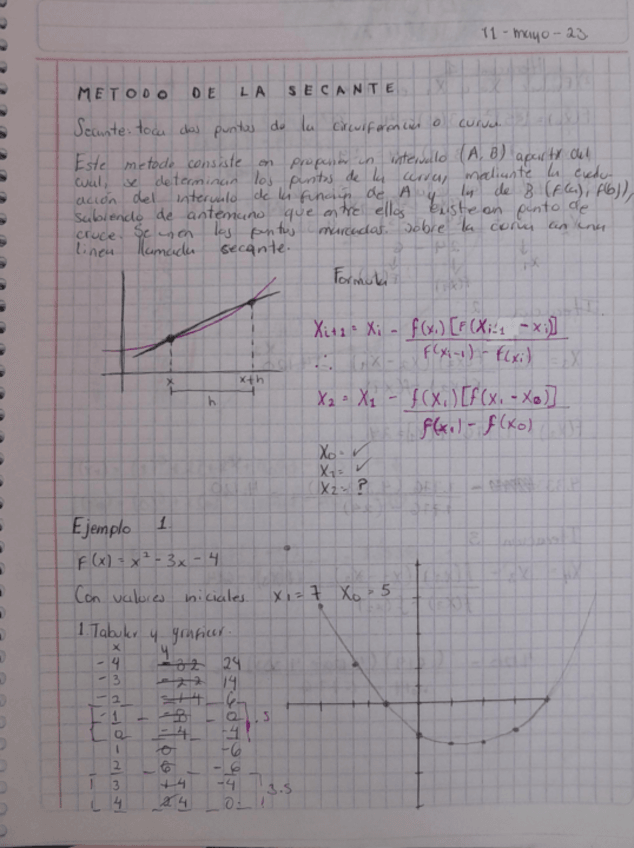 11-mayo-23
METODO DE LA SECANTE
Secante: toca dos puntos de la circunferencia o curva
Este metodo consiste en proponer un intervalo (A, B) apartir del
cual, se determinan los puntos de la curva, mediante la evalu-
ación del intervalo de la función de A y la de B (F(a), f(b)),
sabiendo de antemano que entre ellos existe un punto de
cruce. Se unen los puntos marcados sobre la curva con una
linea llamada secante.
Formula
Xi+1 = Xi - f(xi) [F(Xi-1 - xi)]
F(xi-1) - f(xi)
∴
x x+h
h
X2 = X1 - f(x1) [f(x1 - x0)]
f(x1) - f(x0)
X0= ✓
X1= ✓
X2= ?
Ejemplo 1
F(x) = x² - 3x - 4
Con valores iniciales x1 = 7 X0 = 5
1 Tabular y graficar.
x y
-4 -32 24
-3 -22 14
-2 -14 6
-1 -8 0
0 -4 -4 .5
1 0 -6
2 6 -6
3 14 -4 3.5
4 24 0